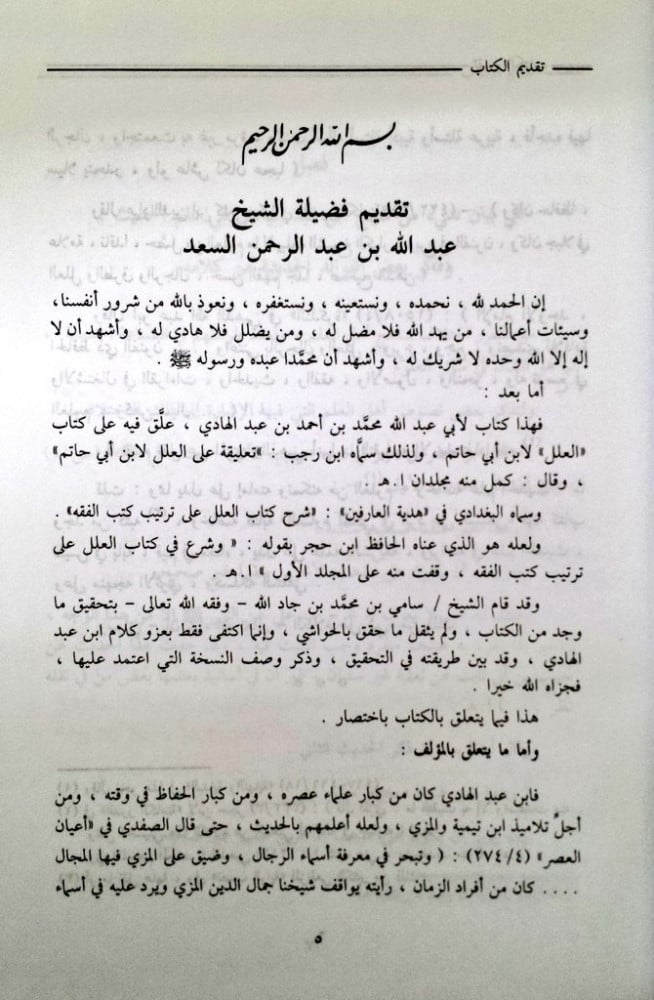 تقديم الكتاب
بسم الله الرحمن الرحيم
تقديم فضيلة الشيخ
عبد الله بن عبد الرحمن السعد
إن الحمد لله ، نحمده ، ونستعينه ، ونستغفره ، ونعوذ بالله من شرور أنفسنا،
وسيئات أعمالنا ، من يهد الله فلا مضل له ، ومن يضلل فلا هادي له ، وأشهد أن لا
إله إلا الله وحده لا شريك له ، وأشهد أن محمَّدا عبده ورسوله ﷺ .
أما بعد :
فهذا كتاب لأبي عبد الله محمَّد بن أحمد بن عبد الهادي ، علَّق فيه على كتاب
«العلل» لابن أبي حاتم ، ولذلك سمَّاه ابن رجب : «تعليقة على العلل لابن أبي حاتم»
، وقال : كمل منه مجلدان ا.هـ .
وسماه البغدادي في «هدية العارفين» : «شرح كتاب العلل على ترتيب كتب الفقه» .
ولعله هو الذي عناه الحافظ ابن حجر بقوله : « وشرع في كتاب العلل على
ترتيب كتب الفقه ، وقفت منه على المجلد الأول » ا.هـ .
وقد قام الشيخ / سامي بن محمَّد بن جاد الله – وفقه الله تعالى – بتحقيق ما
وجد من الكتاب ، ولم يثقل ما حقق بالحواشي ، وإنما اكتفى فقط بعزو كلام ابن عبد
الهادي ، وقد بين طريقته في التحقيق ، وذكر وصف النسخة التي اعتمد عليها ،
فجزاه الله خيرا .
هذا فيما يتعلق بالكتاب باختصار .
وأما ما يتعلق بالمؤلف :
فابن عبد الهادي كان من كبار علماء عصره ، ومن كبار الحفاظ في وقته ، ومن
أجلِّ تلاميذ ابن تيمية والمزي ، ولعله أعلمهم بالحديث ، حتى قال الصفدي في «أعيان
العصر» (٤/٢٧٤) : ( وتبحر في معرفة أسماء الرجال ، وضيق على المزي فيها المجال
.... كان من أفراد الزمان ، رأيته يواقف شيخنا جمال الدين المزي ويرد عليه في أسماء
٥